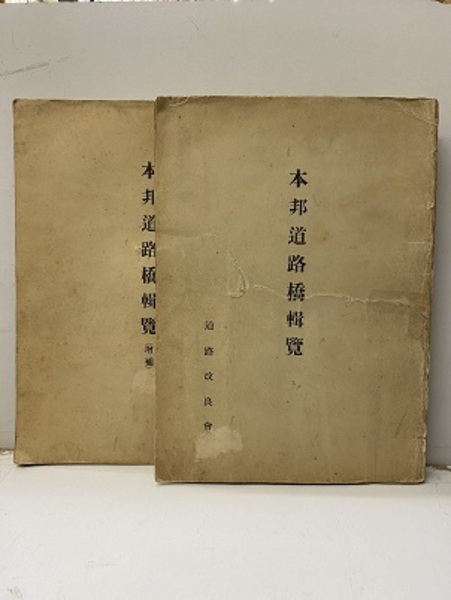 本邦道路橋輯覽
道路改良會
本邦道路橋輯覽(増補)